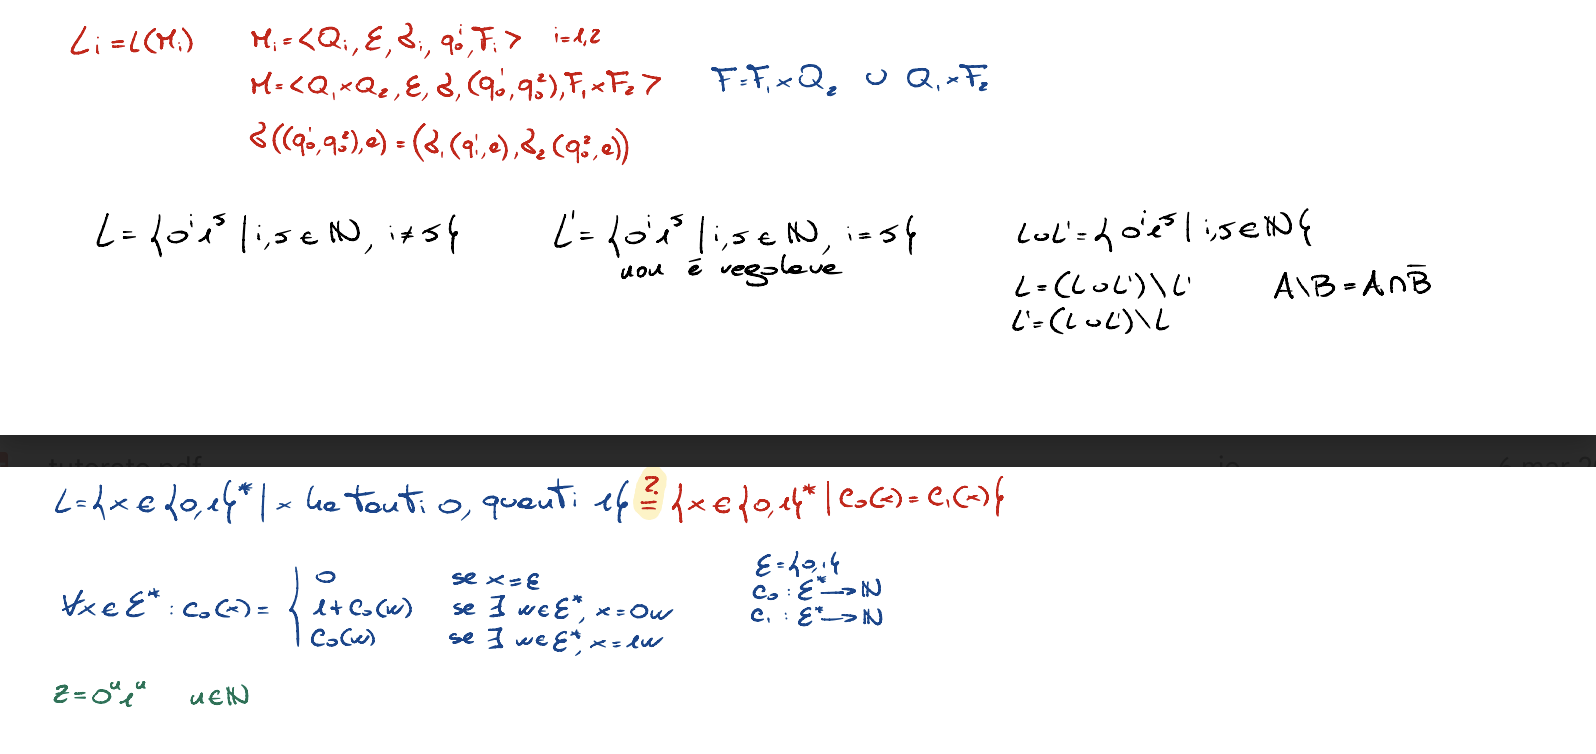 Lᵢ = L(Mᵢ) Mᵢ = <Qᵢ, Σ, δᵢ, q₀ⁱ, Fᵢ> i=1,2
M = <Q₁×Q₂, Σ, δ, (q₀¹, q₀²), F₁×F₂> F = F₁×Q₂ ∪ Q₁×F₂
δ((q₀¹, q₀²), a) = (δ₁(q₀¹, a), δ₂(q₀², a))
L = {0ⁱ1ʲ | i,j ∈ ℕ, i≠j} L' = {0ⁱ1ʲ | i,j ∈ ℕ, i=j} L∪L' = {0ⁱ1ʲ | i,j ∈ ℕ}
non è regolare
L = (L∪L')\L' A\B = A∩B̅
L' = (L∪L')\L
L = {x ∈ {0,1}* | x ha tanti 0, quanti 1} ≟ {x ∈ {0,1}* | C₀(x) = C₁(x)}
∀x ∈ Σ* : C₀(x) = { 0 se x = ε
1 + C₀(w) se ∃ w ∈ Σ*, x = 0w
C₀(w) se ∃ w ∈ Σ*, x = 1w
Σ = {0,1}
C₀ : Σ* → ℕ
C₁ : Σ* → ℕ
z = 0ⁿ1ⁿ n ∈ ℕ